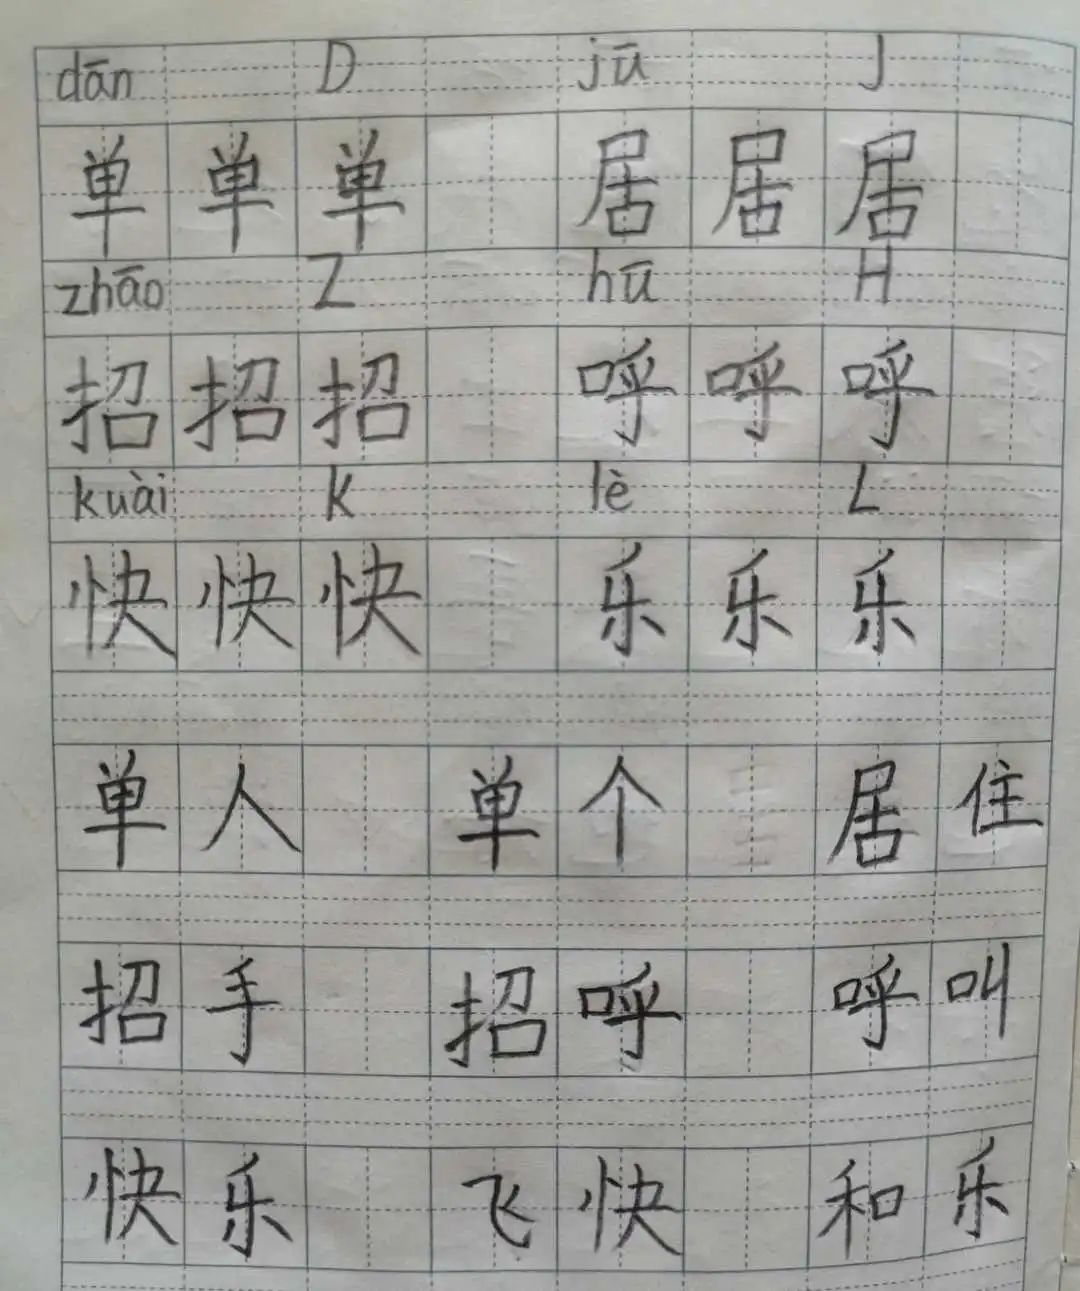 dān D jū J
单 单 单 居 居 居
zhāo Z hū H
招 招 招 呼 呼 呼
kuài K lè L
快 快 快 乐 乐 乐
单人 单个 居住
招手 招呼 呼叫
快乐 飞快 和乐